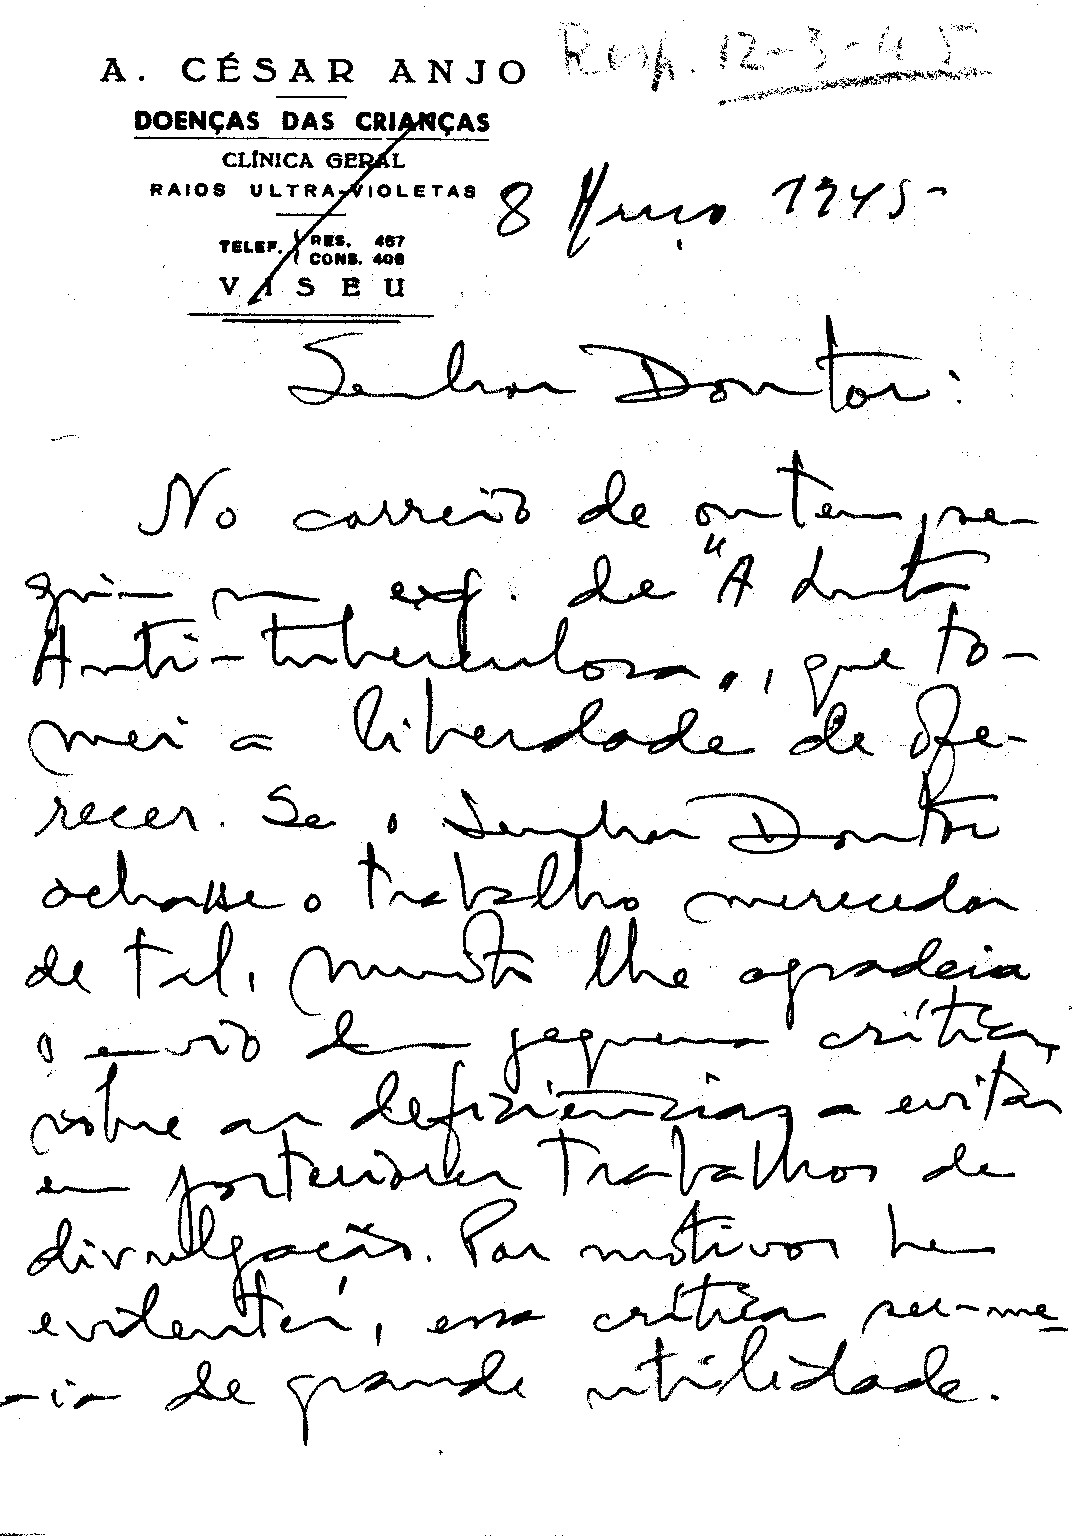 Resp. 12-3-45
A. CÉSAR ANJO
DOENÇAS DAS CRIANÇAS
CLÍNICA GERAL
RAIOS ULTRA-VIOLETAS
TELEF. RES. 467
CONS. 408
VISEU
8 Março 1945-
Senhor Doutor:
No correio de ontem, se-
guiu um exp. de "A Luta
Anti-tuberculosa", que to-
mei a liberdade de ofe-
recer. Se o Senhor Doutor
achasse o trabalho merecedor
de tal, muito lhe agradecia
o envio dum pequena crítica,
sobre as deficiências a evitar
em posteriores trabalhos de
divulgação. Por motivos bem
evidentes, essa crítica ser-me-
-ia de grande utilidade.